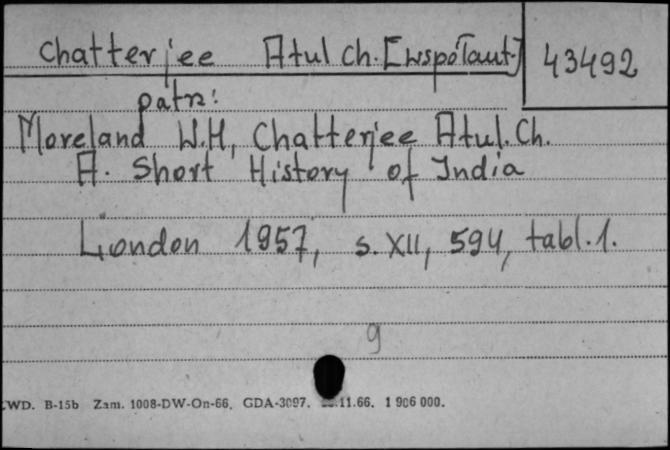 Chatterjee Atul Ch. [współaut.] 43492
patrz:
Moreland W.H, Chatterjee Atul. Ch.
A. Short History of India
London 1957, s. XII, 594, tabl. 1.
9
WD. B-15b Zam. 1008-DW-On-66. GDA-3097. .11.66. 1 906 000.